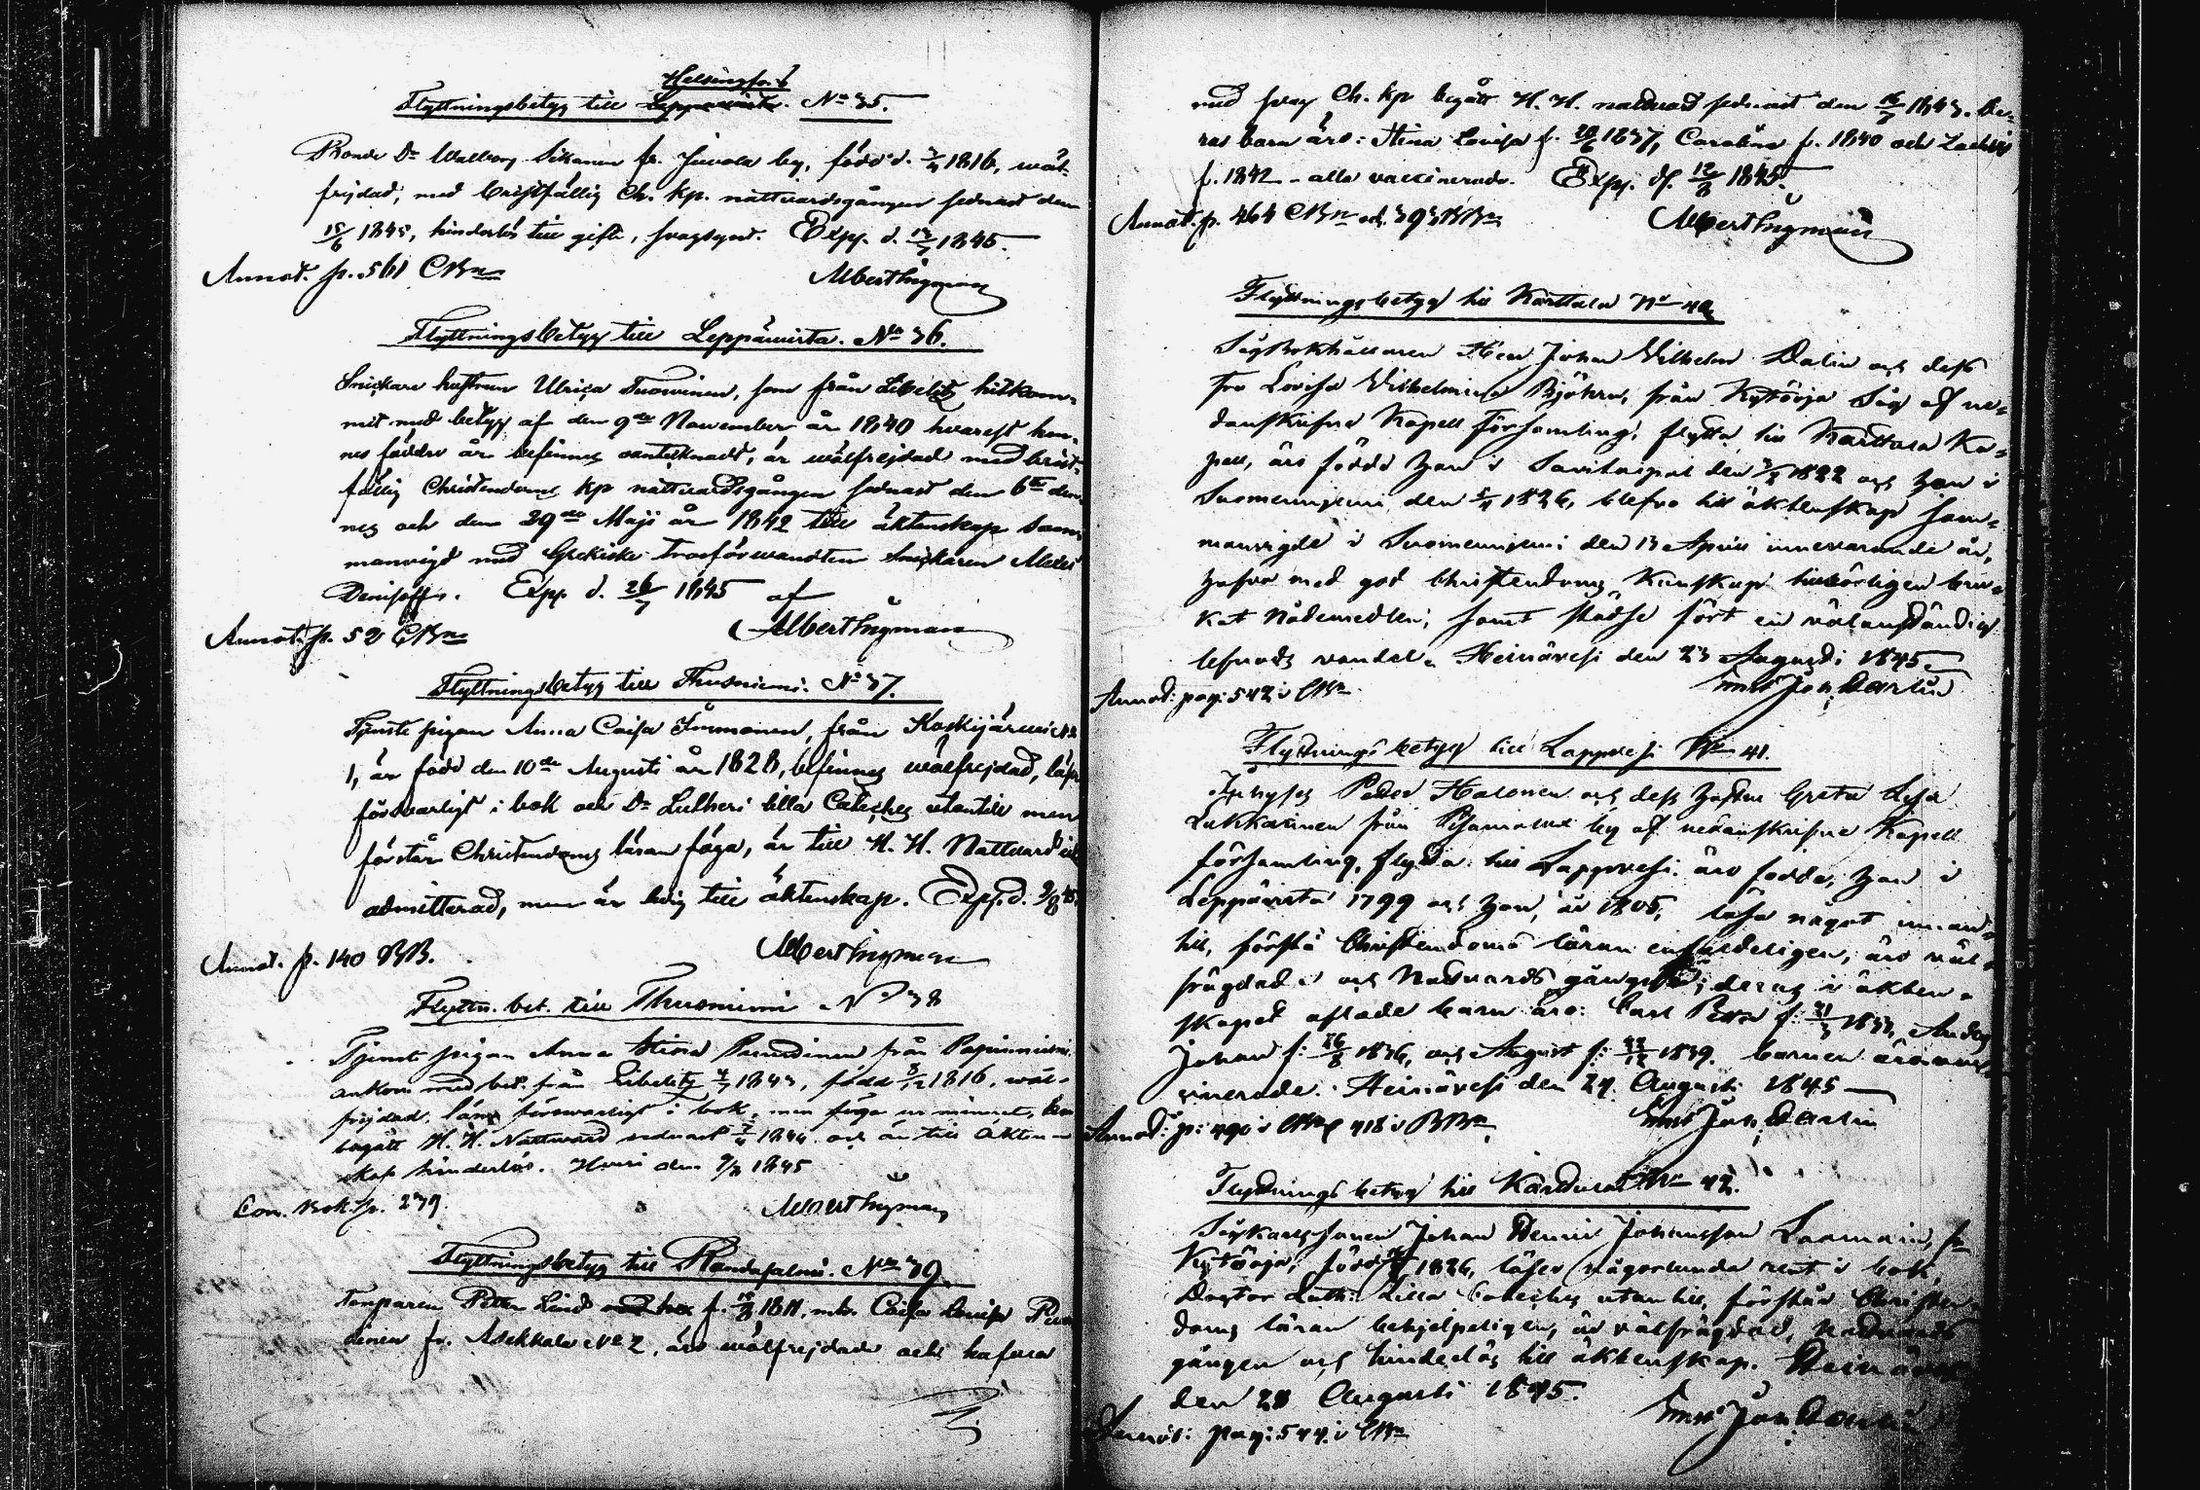 Helsingfors
Flyttningsbetyg till Leppävirta. No 35.
Bonde Dr Walborg Sikanen fr. Juvola by, född d. 1816, wäl-
frejdad, med bristfällig Ch. kp. nattvardsgången sednast den
15/6 1845, hinderlös till gifte, Exp. d. 1845.
Annot. p. 561 CBn
Albert Ingman
Flyttningsbetyg till Leppävirta. No 36.
Snickare hustrun Ulrica Tuovinen, som från Libelitz hitkom-
mit med betyg af den 9de November år 1840 hvarest hen-
nes födelse år befinnes antecknadt, är wälfrejdad med brist-
fällig Christendoms kp nattvardsgången sednast den 6te den-
nes och den 29de Maji år 1842 till äktenskap sam-
manvigd med Grekiske Trosförwandten Snickaren
Denisoff. Exp. d. 26/7 1845 af
Annot. p. 52 CBn
Albert Ingman
Flyttningsbetyg till Thusniemi. No 37.
Tjenste pigan Anna Caisa Immonen, från Koskijärvi No
1, är född den 10de Augusti år 1828, befinnes wälfrejdad, läser
försvarligt i bok och Dr Lutheri lilla Cateches utantill men
förstår Christendoms läran föga, är till H. H. Nattvard
admitterad, men är ledig till äktenskap. Exp. d. 9/8 45.
Annot. p. 140 BB.
Albert Ingman
Flyttn. bet. till Thusniemi No 38
Tjenste pigan Anna Stina Pundinen från Papinniemi
ankom med bet. från Libelitz 1843, född 1816, wäl-
frejdad, läser försvarligt i bok, men föga ur minnet, har
begått H. H. Nattvard sednast 1844 och är till äkten-
skap hinderlös. den 9/8 1845
Com. Bok. p. 279.
Albert Ingman
Flyttningsbetyg till Randasalmi. No 39.
Petter Lind f. 1811, Caisa Lovisa
fr. No 2, äro wälfrejdade och hafwa
med swag Ch. kp begått H. H. nattvard sednast den 1843. De-
ras barn äro: Stina Lovisa f. 1837, Carolina f. 1840 och
f. 1842 - alla vaccinerade. Exp. d. 12/8 1845.
Annot. p. 464 CBn och 393 BBn
Albert Ingman
Flyttningsbetyg till Karttula No 40.
Sågbokhållaren Herr Johan Vilhelm Dalin och dess
fru Lovisa Vilhelmina Björkru, från Kytöoja Såg af ne-
danskrifne Kapell Församling, flytta till Karttula Ka-
pell, äro födde han i Savitaipal den 1822 och hon i
Suomenniemi den 1826, blefvo till äktenskap sam-
manvigde i Suomenniemi den 13 April innevarande år,
hafva med god Christendoms Kunskap bru-
kat Nådemedlen, samt städse fört en välanständig
lefnads vandel. Heinävesi den 23 Augusti 1845.
Annot: pag: 542 i CBn
Flyttnings betyg till Lappvesi No 41.
Inhyses Peder Halonen och dess hustru Greta Lisa
Lukkarinen från by af nedanskrifne Kapell
församling, flytta till Lappvesi, äro födde, han i
Leppävirta 1799 och hon, år 1805, läsa något innan-
till, förstå Christendoms läran enfaldeligen, äro väl-
frägdade och Nattvards gångne; deras i äkten-
skapet aflade barn äro: Carl Petter f: 1833,
Johan f: 1836, och August f: 1839. barnen äro vac-
cinerade. Heinävesi den 24 Augusti 1845
Annot: p: 490 i CBn & 418 i BBn
Flyttnings betyg till Karttula No 42.
Johan Johansson Laamain, fr
Kytöoja, född 1826, läser någorlunda rent i bok,
Doctor Luth: Lilla Cateches utantill, förstår Christen-
doms läran behjelpeligen, är välfrägdad, Nattvards
gången och hinderlös till äktenskap. Heinävesi
den 28 Augusti 1845.
Annot: pag: 544 i CBn